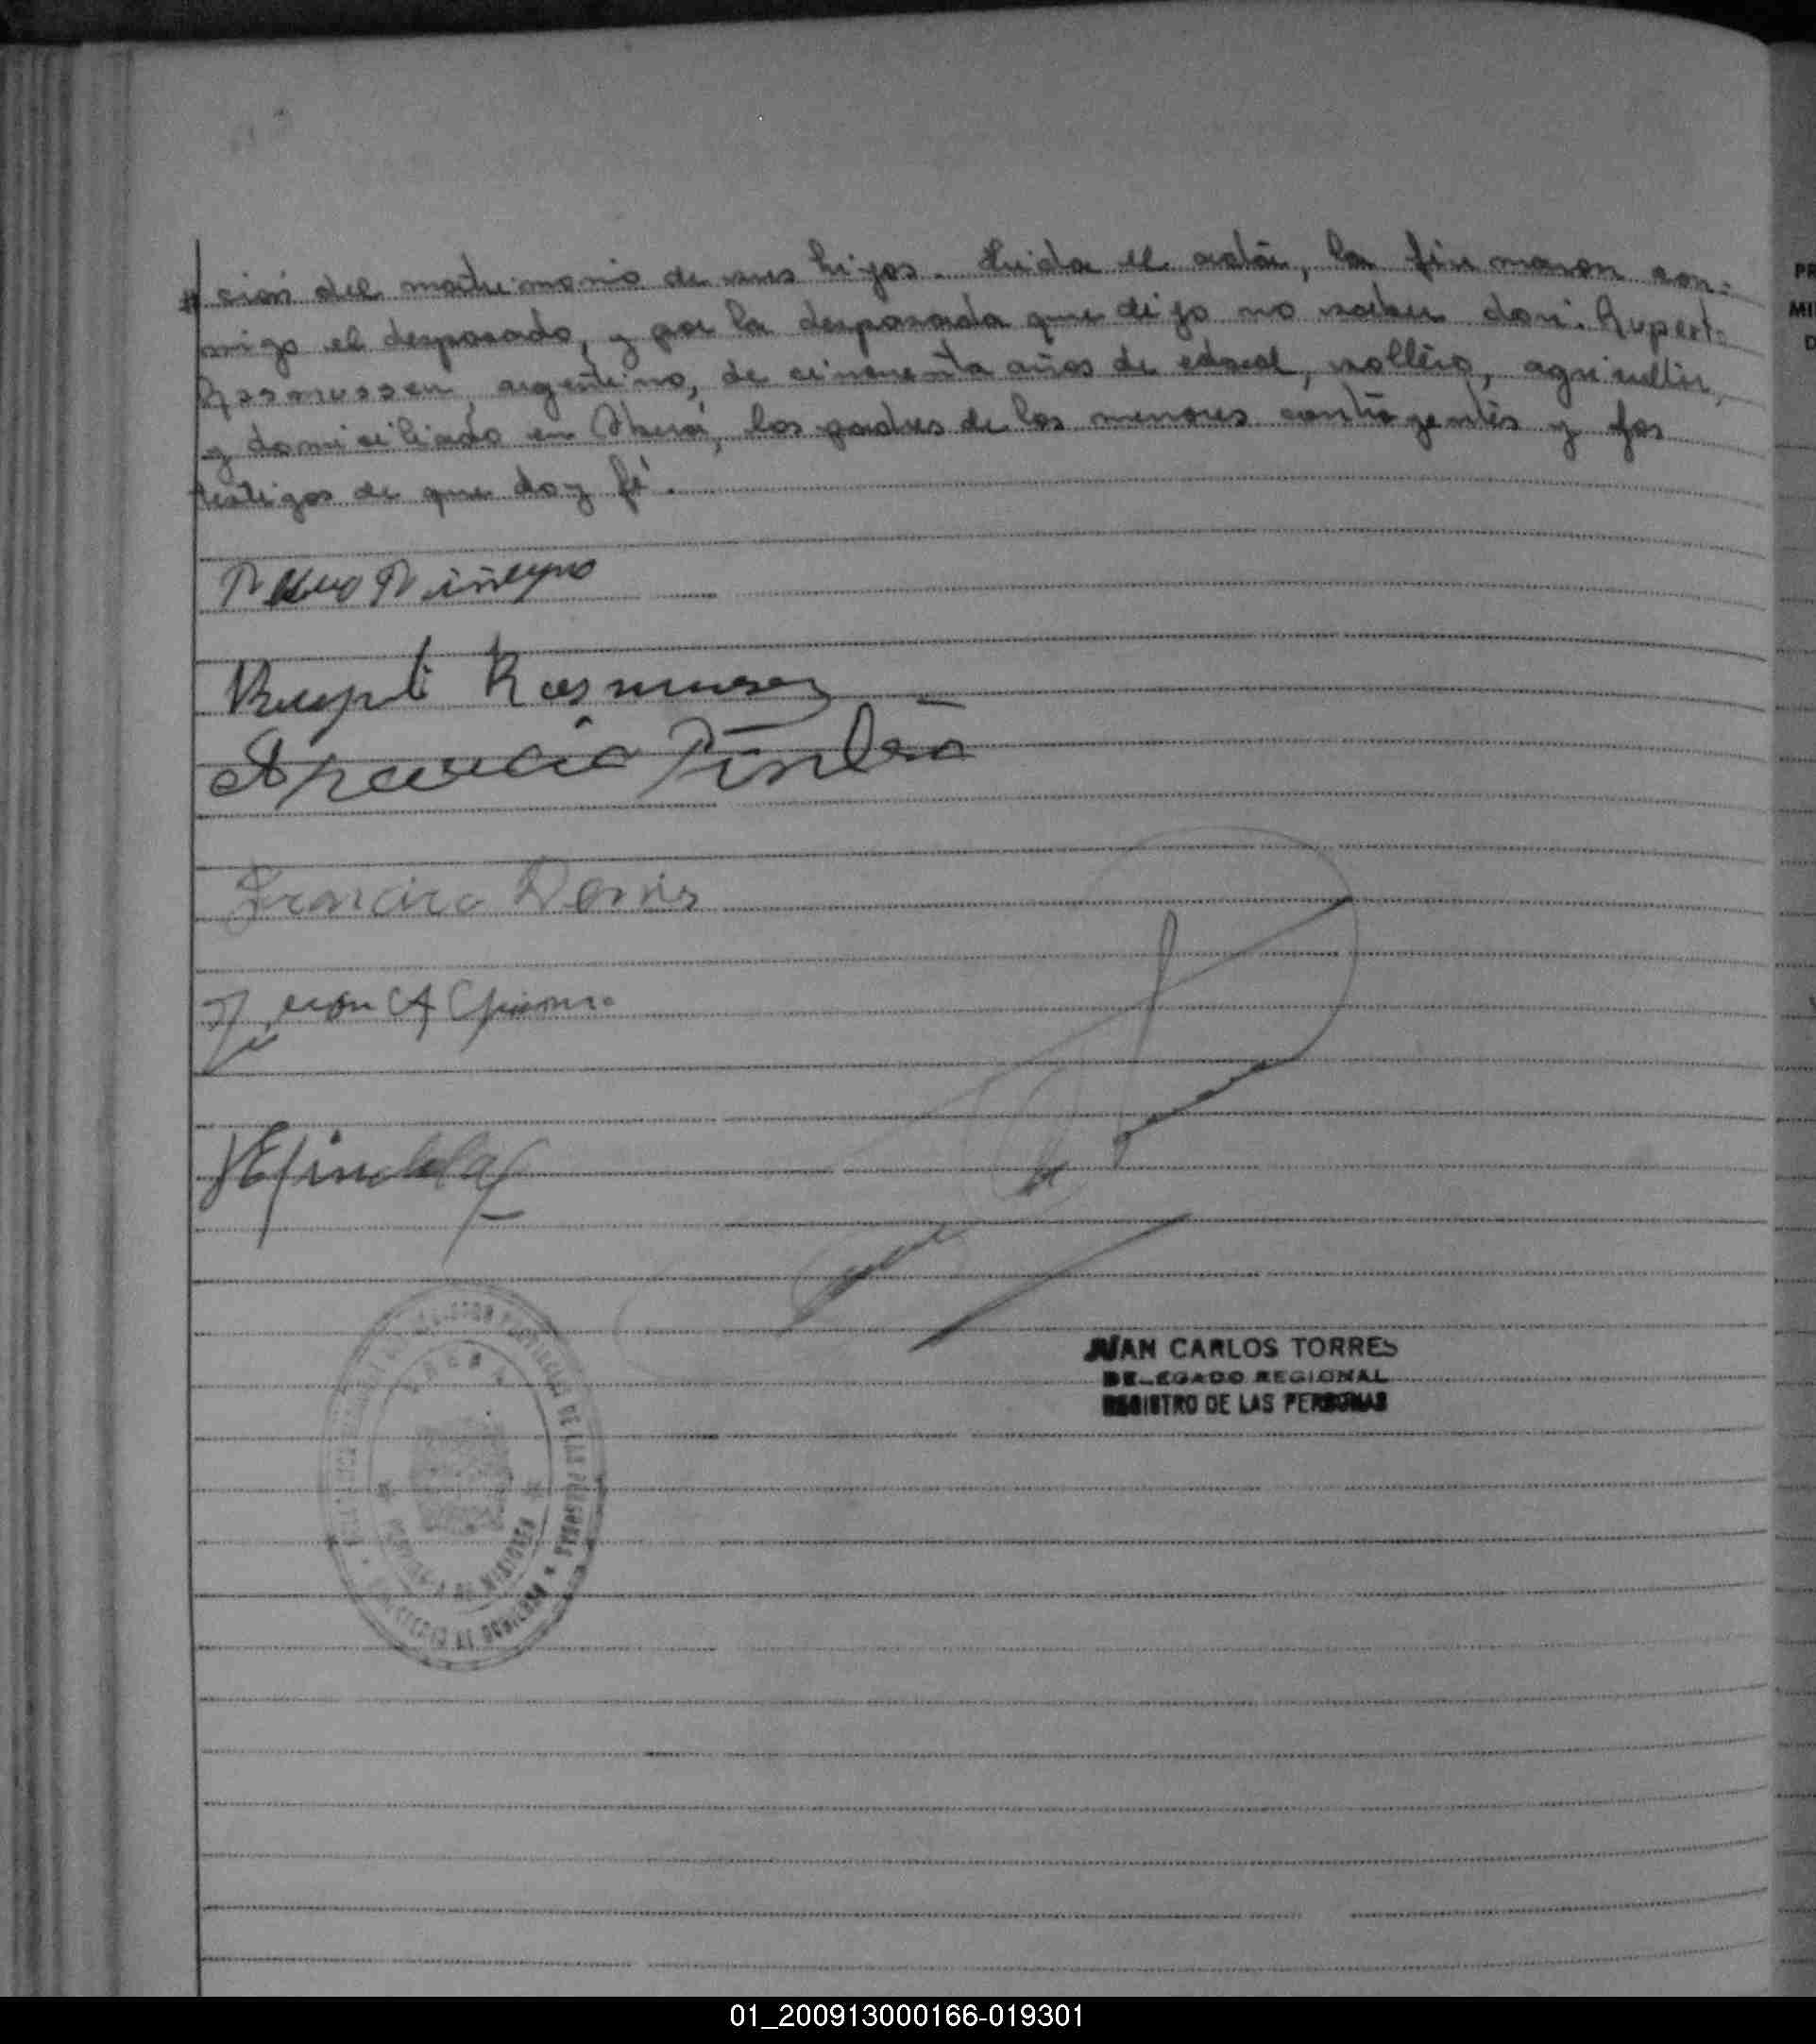 ción del matrimonio de sus hijos. Leida el acta, la firmaron con-
migo el desposado, y por la desposada que dijo no saber don: Ruperto
Rasmussen, argentino, de cincuenta años de edad, soltero, agricultor,
y domiciliado en Oberá, los padres de los menores contrayentes y los
testigos de que doy fé.
Ruperto Rasmussen
Aparicio
Francisco
Juan A
JUAN CARLOS TORRES
DELEGADO REGIONAL
REGISTRO DE LAS PERSONAS
DE LAS PERSONAS
OBERA
PROVINCIA DE MISIONES
DE GOBIERNO
01_200913000166-019301